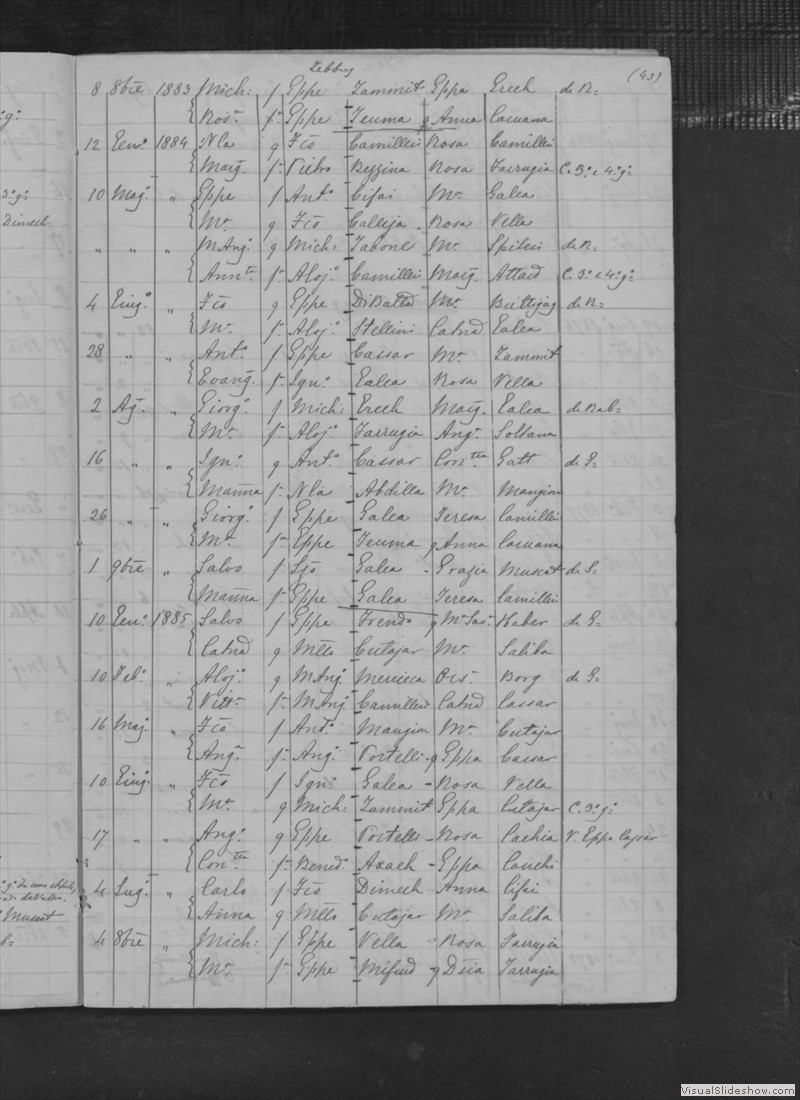 Zebbug
(43)
8 8bre 1883 Mich: f Gppe Zammit Gppa Grech de R=
Ros.ª f.ª Gppe Zeuma q Anna Caruana
12 Gen.º 1884 Nla q Fco Camilleri Rosa Camilleri
Marg. f.ª Pietro Bezzina Rosa Farrugia C. 3.º e 4.º g.º
10 Mag.º " Gppe f Ant.º Cifai M.ª Galea
M.ª q Fco Calleja - Rosa Vella
" " " M Ang. q Mich: Tabone M.ª Spiteri de R=
Ann.ta f.ª Aloj.º Camilleri Marg. Attard C. 3.º e 4.º g.º
4 Giug.º " Fco q Gppe DiBatta M.ª Buttigieg de R=
M.ª f.ª Aloj.º Stellini Catna Galea
28 " " Ant.º f Gppe Cassar M.ª Zammit
Evang. f.ª Ign.º Galea Rosa Vella
2 Ag. " Giorg.º f Mich: Grech Marg. Galea de Rab=
M.ª f.ª Aloj.º Farrugia Ang.ª Soltana
16 " " Ign.º q Ant.º Cassar Con.tta Gatt de G=
Marina f.ª Nla Abdilla M.ª Mangion
26 " " Giorg.º f Gppe Galea Teresa Camilleri
M.ª f.ª Gppe Zeuma q Anna Caruana
1 9bre " Salvo f Galea - Grazia Muscat de
Marina f.ª Gppe Galea Teresa Camilleri
10 Gen.º 1885 Salvo f Gppe Trendo q Haber de G=
Catna q Mtto Cutajar M.ª Saliba
10 Feb.º " Aloj.º q M Ang. Mercieca Borg de G=
Vitt.ª f.ª M Ang. Camilleri Catna Cassar
16 Mag. " Fco f Ant.º Mangion M.ª Cutajar
Ang.ª f.ª Ang. Portelli - q Gppa Cassar
10 Giug.º " Fco f Ign.º Galea - Rosa Vella
M.ª q Mich: Zammit Gppa Cutajar C. 3.º g.º
17 " " Ang.º q Gppe Portelli - Rosa Cachia V. Gppa Cassar
Con.tta f.ª Bened.º Axach - Gppa Cauchi
4 Lug.º " Carlo f Fco Dimech Anna
Anna q Mtto Cutajar M.ª Saliba
4 8bre " Mich: f Gppe Vella - Rosa Farrugia
M.ª f.ª Gppe Mifsud q Farrugia
Dimech
Muscat
VisualSlideshow.com